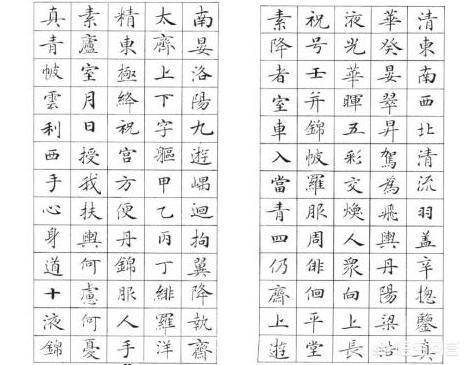 清東南西北清流羽盖辛揔鑒真
華癸晏翠昇駕為飛輿丹陽梁洛
液光華暉五彩交煥人衆向上長
祝号壬并錦帔羅服周俳佪平堂
素降者室車入當青四仍齊上遊
南晏洛陽九遊崵迴拘翼降執齊
太齊上下字軀甲乙丙丁緋羅洋
精東極絳祝宮方便丹錦服人手
素廬室月日授我扶輿何慮何憂
真青帔雲利西手心身道十液錦